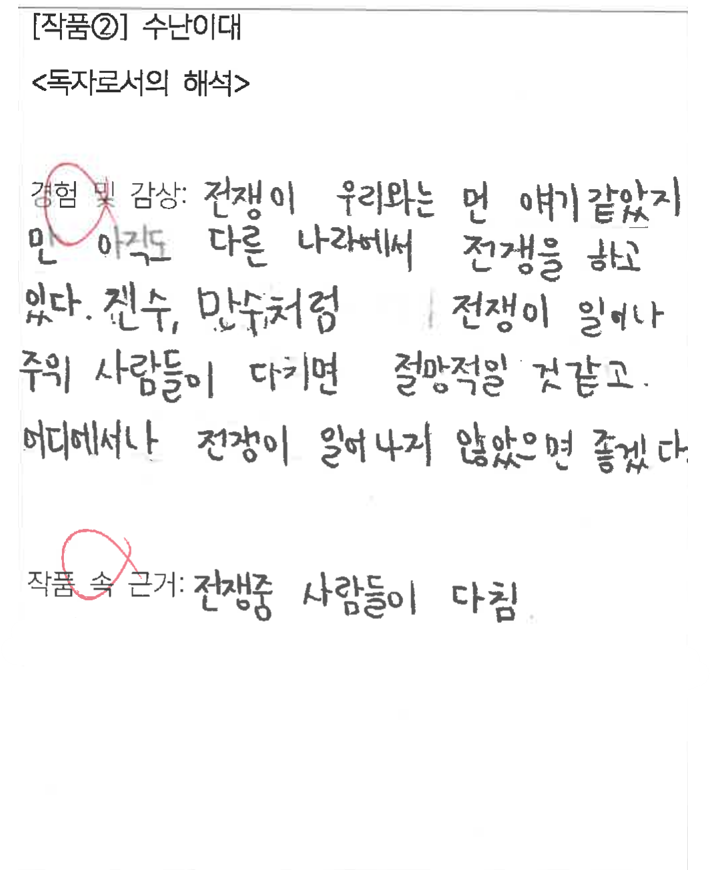 [작품②] 수난이대
<독자로서의 해석>
경험 및 감상: 전쟁이 우리와는 먼 얘기같았지
만 아직도 다른 나라에서 전쟁을 하고
있다. 진수, 만수처럼 전쟁이 일어나
주위 사람들이 다치면 절망적일 것같고.
어디에서나 전쟁이 일어나지 않았으면 좋겠다.
작품 속 근거: 전쟁중 사람들이 다침.